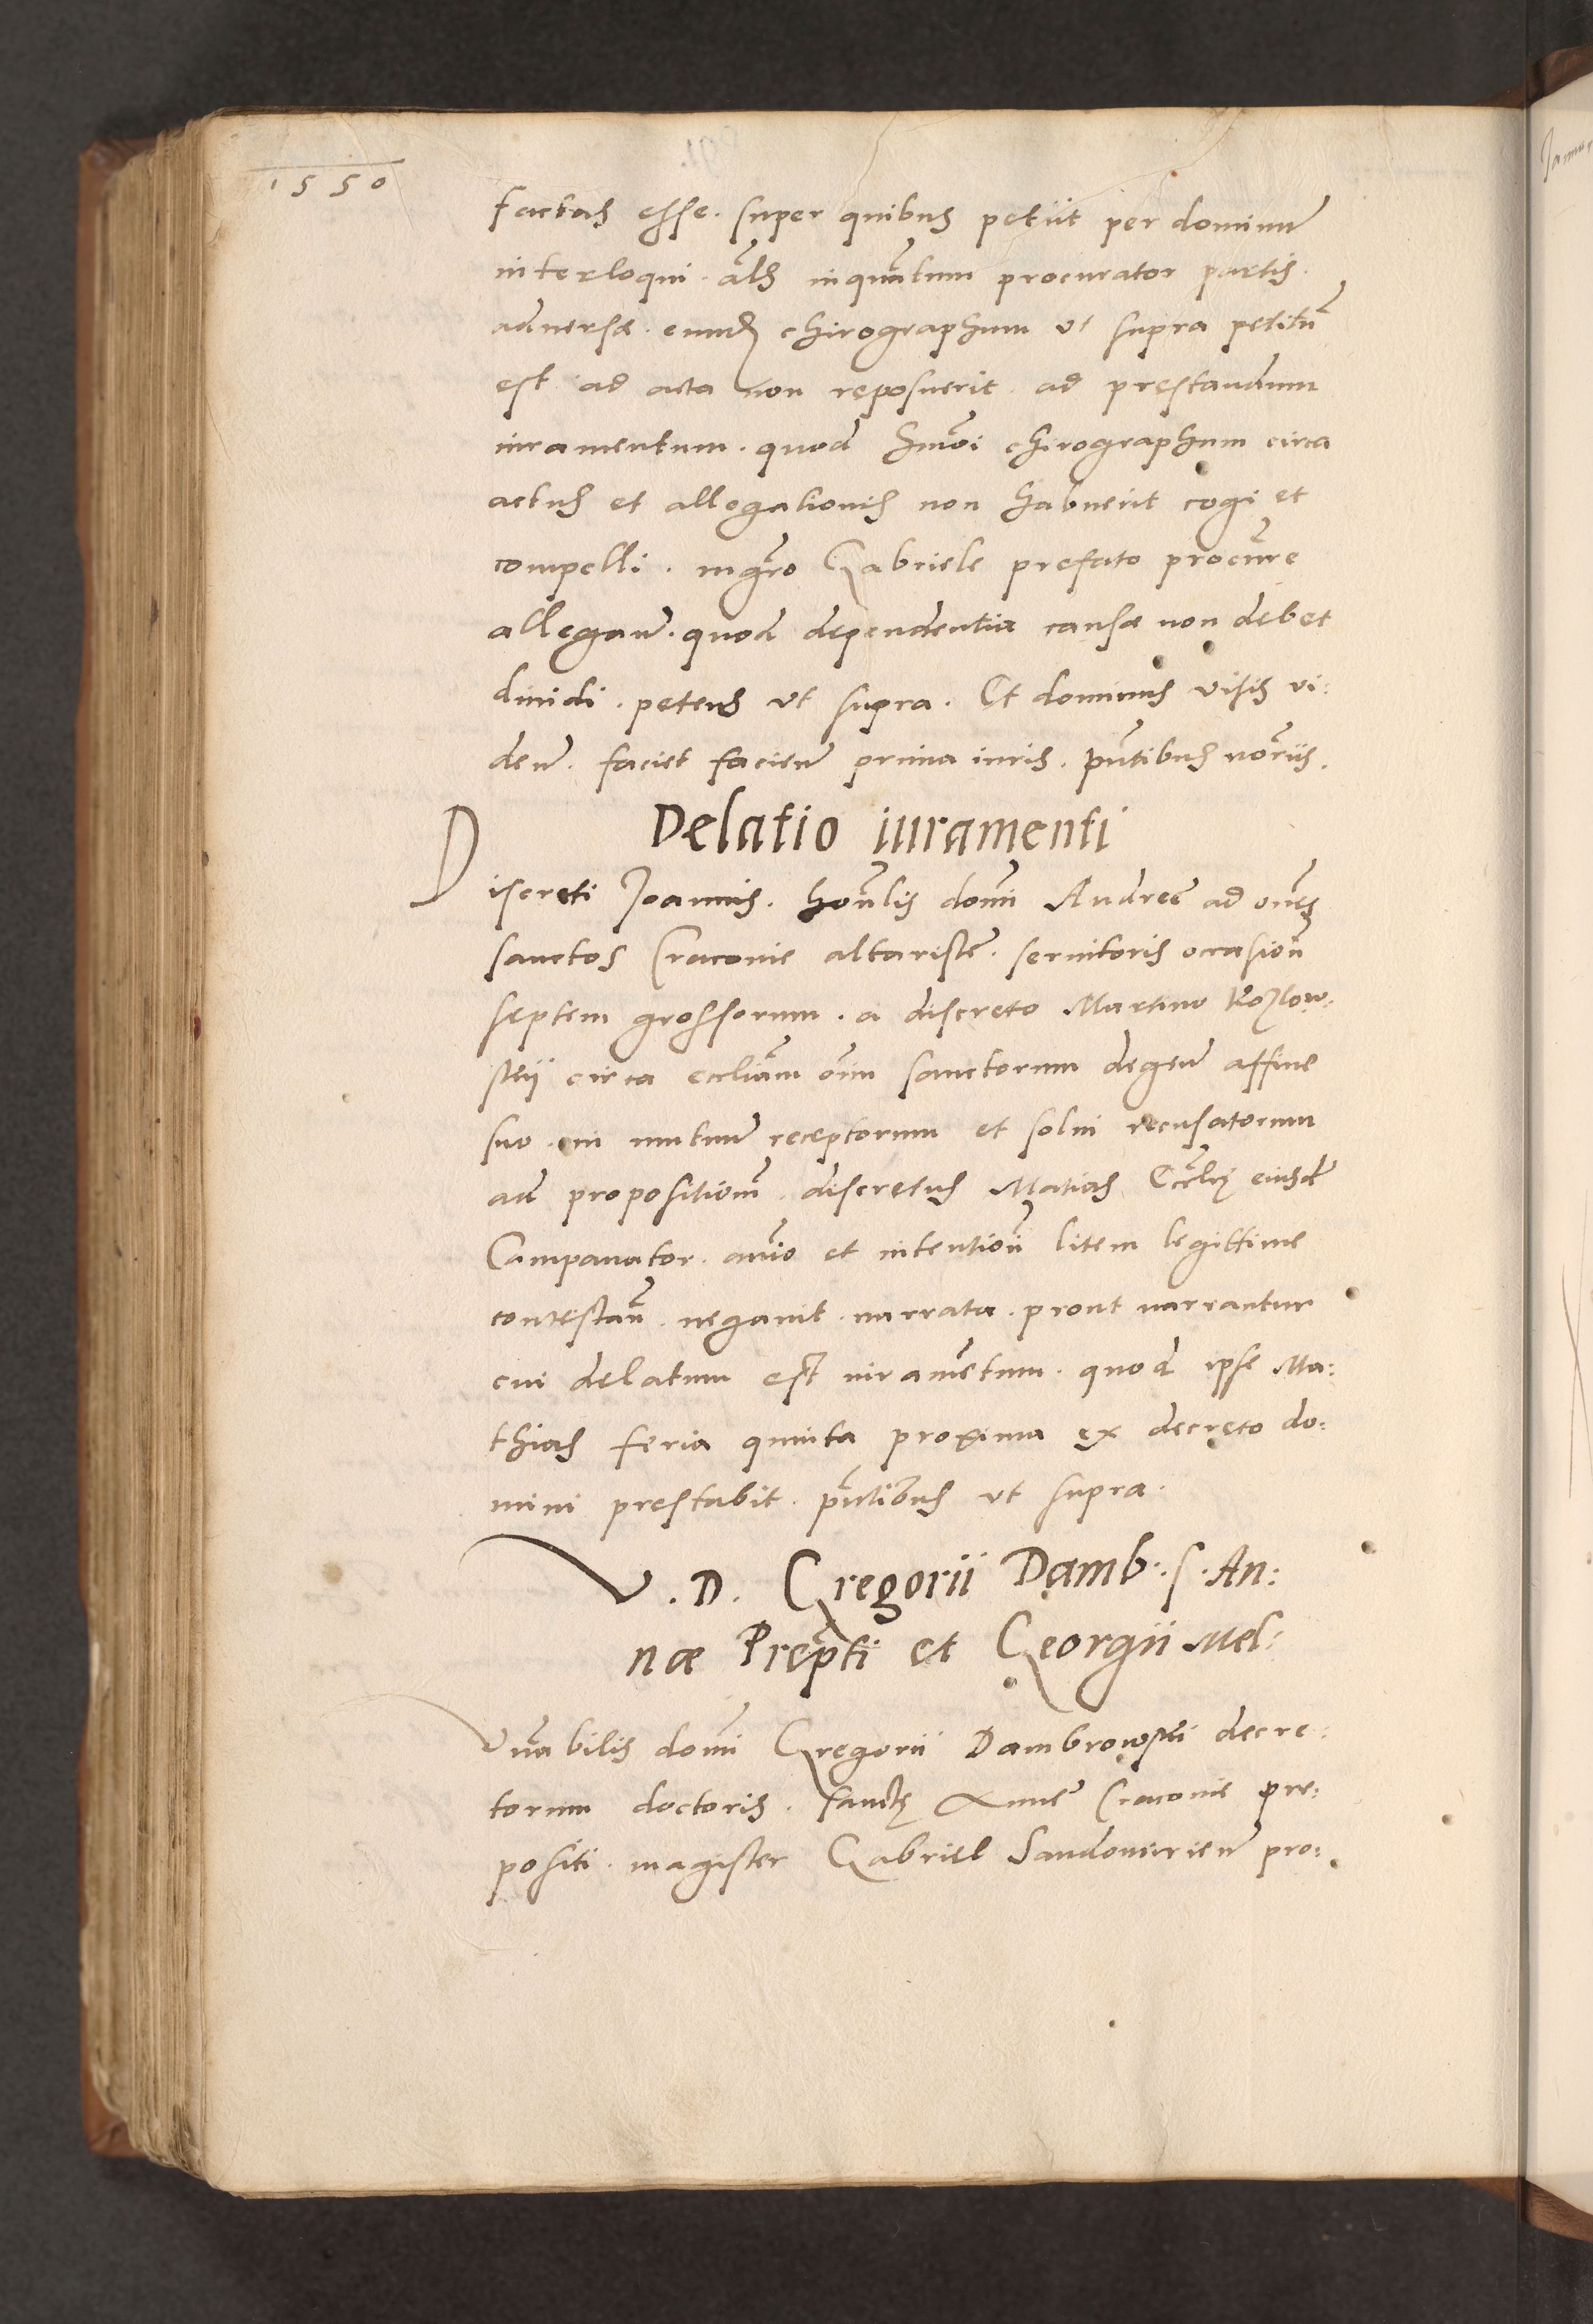 1550
factas esse. super quibus petiit per dominũ
interloqui. al̃s inquãtum procurator partis
adversæ. eund̃ chirographum ut supra petitũ
est ad acta non reposuerit ad prestandum
iuramentum. quod hmõi chirographum circa
actus et allegationis non habuerit cogi et
compelli. mgr̃o Gabriele prefato procũre
allegan̄. quod dependentia causæ non debet
dividi. petens ut supra. Et dominus visis vi:
den̄. faciet facien̄ prima iuris. pñtibus nõriis.
Delatio iuramenti
Discreti Joannis. hoñlis domĩ Andreę ad om̃es
sanctos Cracovie altaristę. servitoris occasioñ
septem grossorum. a discreto Martino Kozlow:
skij circa eccliãm om̃i sanctorum degeñ affine
suo. in mutuũ receptorum et solvi recusatorum
ad propositioñ. discretus Matias Ecclĩę eiusdẽ
Campanator. anĩo et intentioñ litem legittime
contestañ. negavit. narrata. prout narrantur
cui delatum est iuramẽtum. quod ipse Ma:
thias feria quinta proxima ex decreto do:
mini prestabit. pñtibus ut supra.
V. D. Gregorii Damb: S. An:
næ Prepti et Georgii Mel:
Vñabilis domĩ Gregorii Dambrowski decre:
torum doctoris. sanctę Annę Cracovie pre:
positi. magister Gabriel Sandomirień pro: